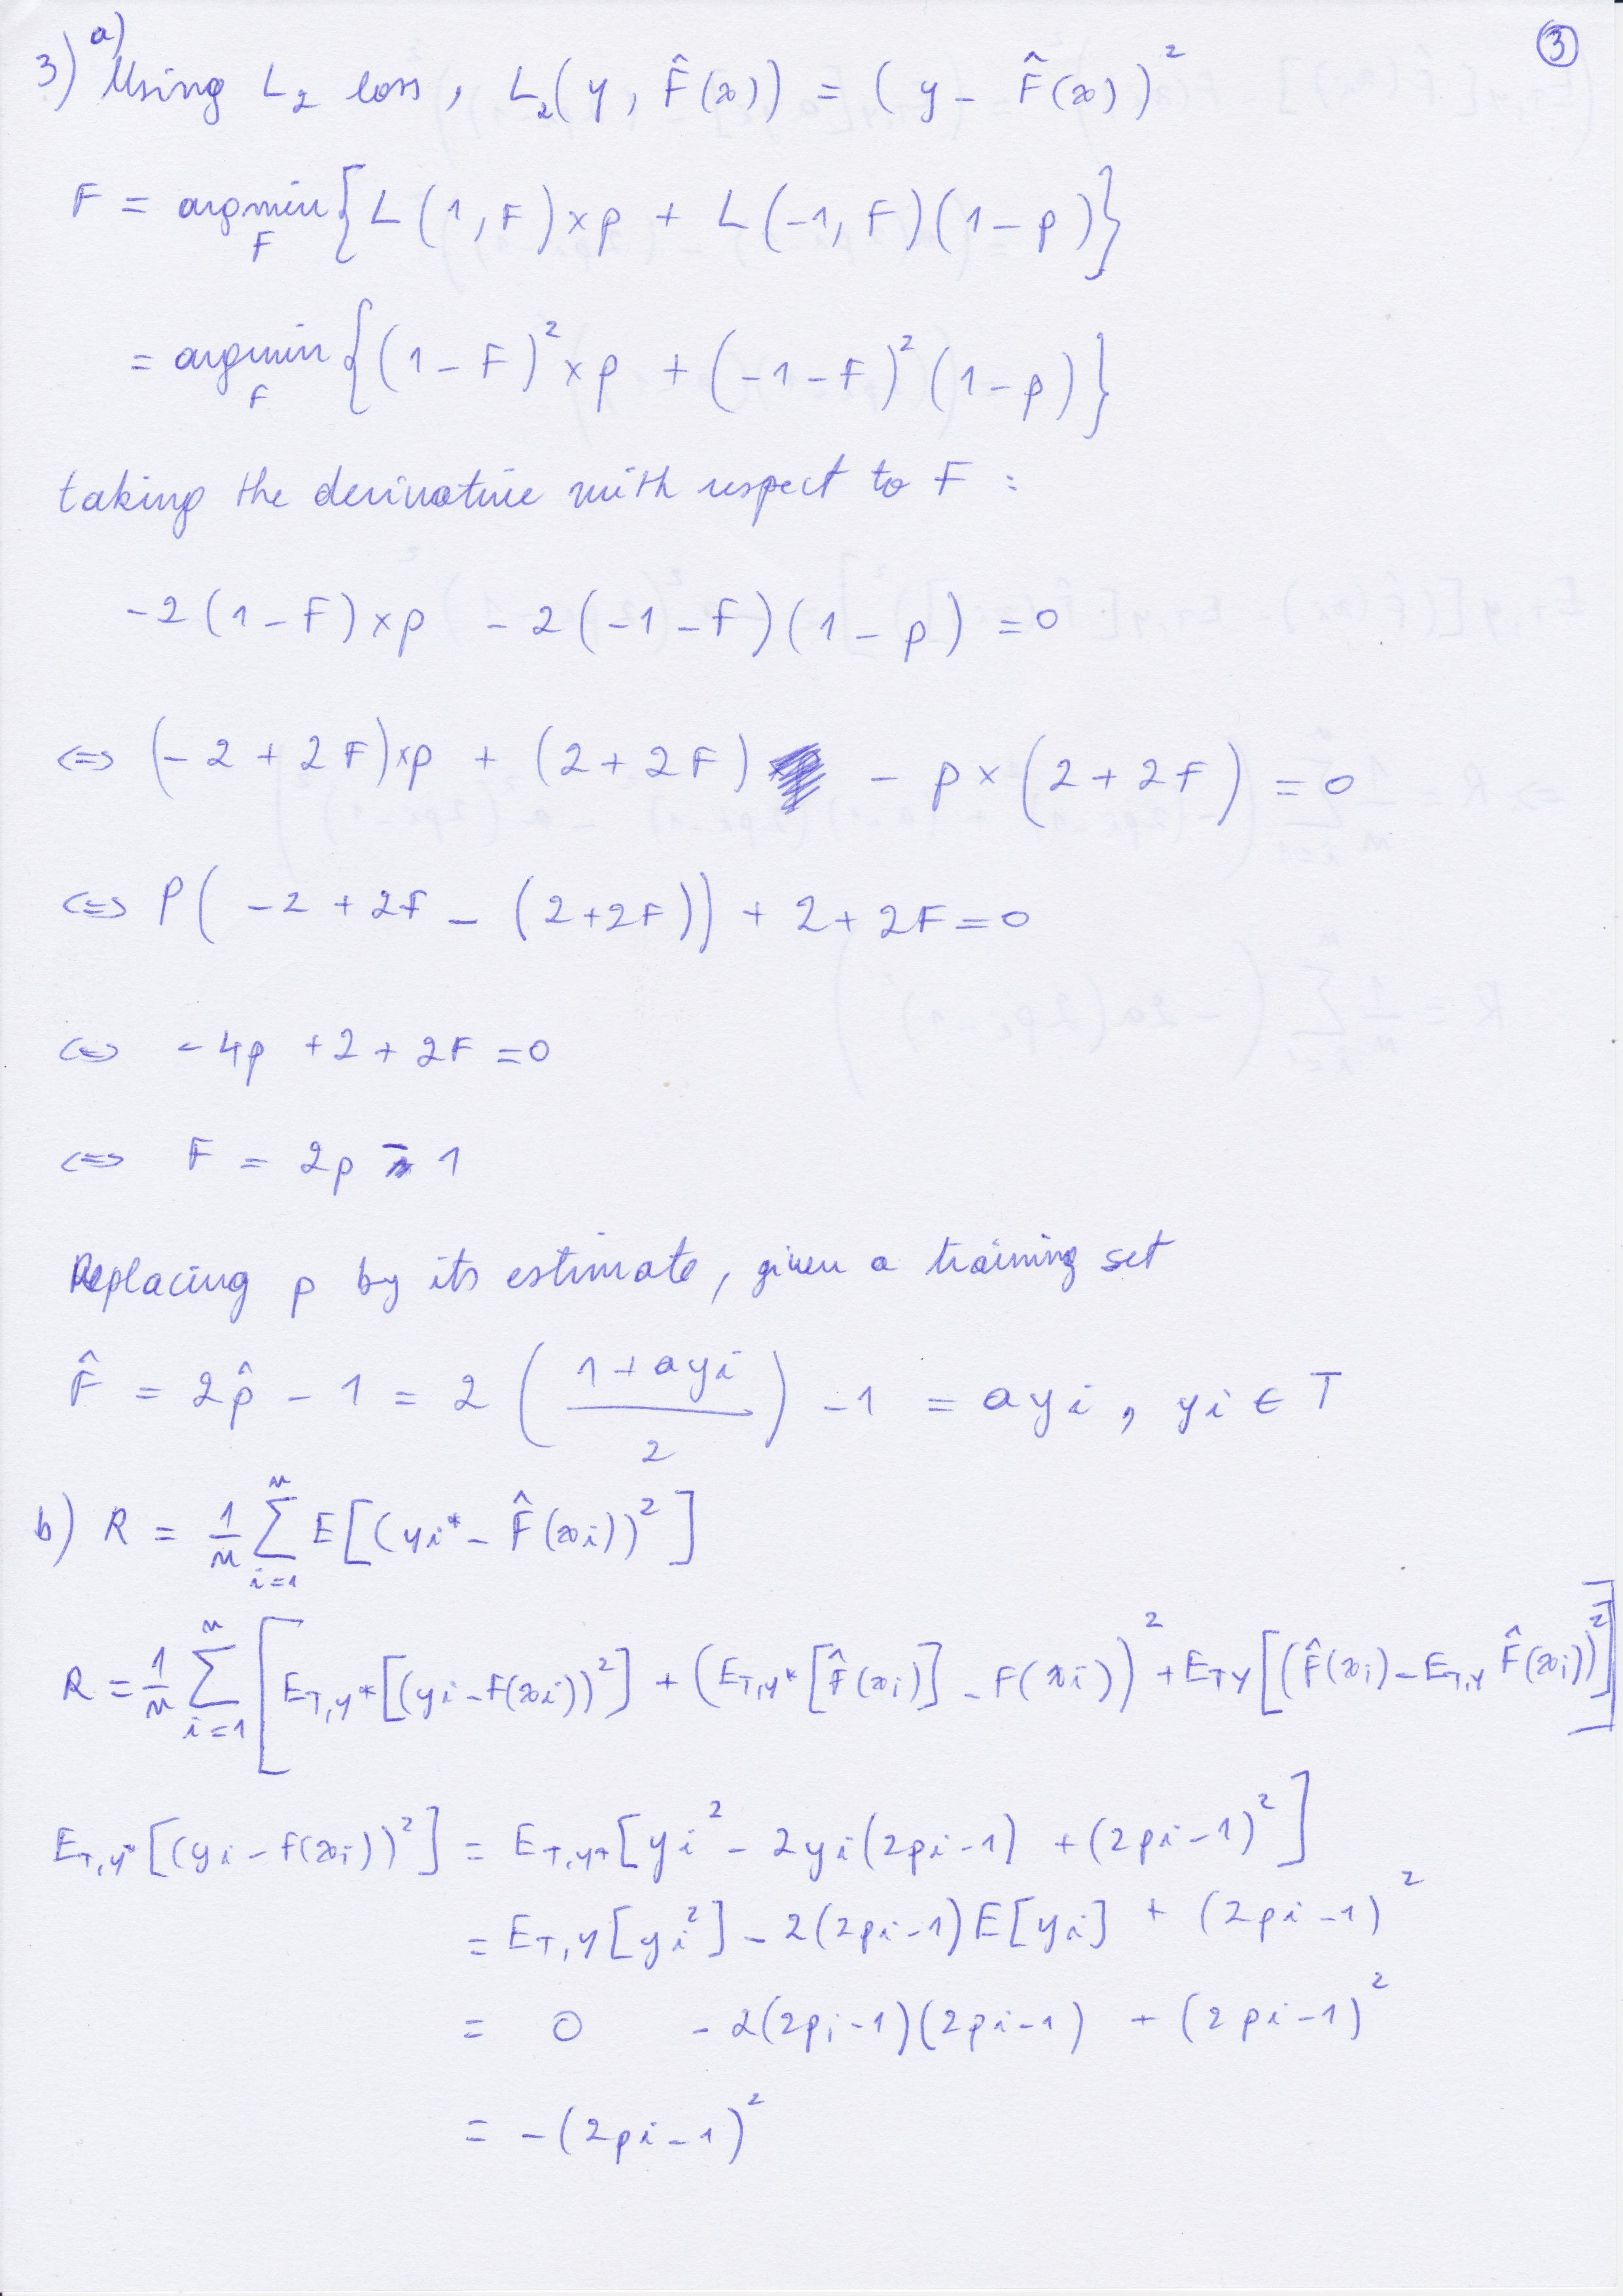 ③
3) a) Using L₂ loss, L₂(y, F̂(x)) = (y - F̂(x))²
F = argmin_F {L(1, F)×p + L(-1, F)(1-p)}
= argmin_F {(1-F)²×p + (-1-F)²(1-p)}
taking the derivative with respect to F :
-2(1-F)×p - 2(-1-F)(1-p) = 0
<=> (-2+2F)×p + (2+2F) - p×(2+2F) = 0
<=> P(-2+2F - (2+2F)) + 2+2F = 0
<=> -4p +2+2F = 0
<=> F = 2p - 1
Replacing p by its estimate, given a training set
F̂ = 2p̂ - 1 = 2((1+ayi)/2) - 1 = ayi, yi ∈ T
b) R = 1/n Σ_{i=1}^{n} E[(yi* - F̂(xi))²]
R = 1/n Σ_{i=1}^{n} [E_{T,y*}[(yi-F(xi))²] + (E_{T,y*}[F̂(xi)] - F(xi))² + E_{TY}[(F̂(xi) - E_{T,Y} F̂(xi))²]]
E_{T,y*}[(yi-f(xi))²] = E_{T,y*}[yi² - 2yi(2pi-1) + (2pi-1)²]
= E_{T,Y}[yi²] - 2(2pi-1)E[yi] + (2pi-1)²
= 0 - 2(2pi-1)(2pi-1) + (2pi-1)²
= -(2pi-1)²